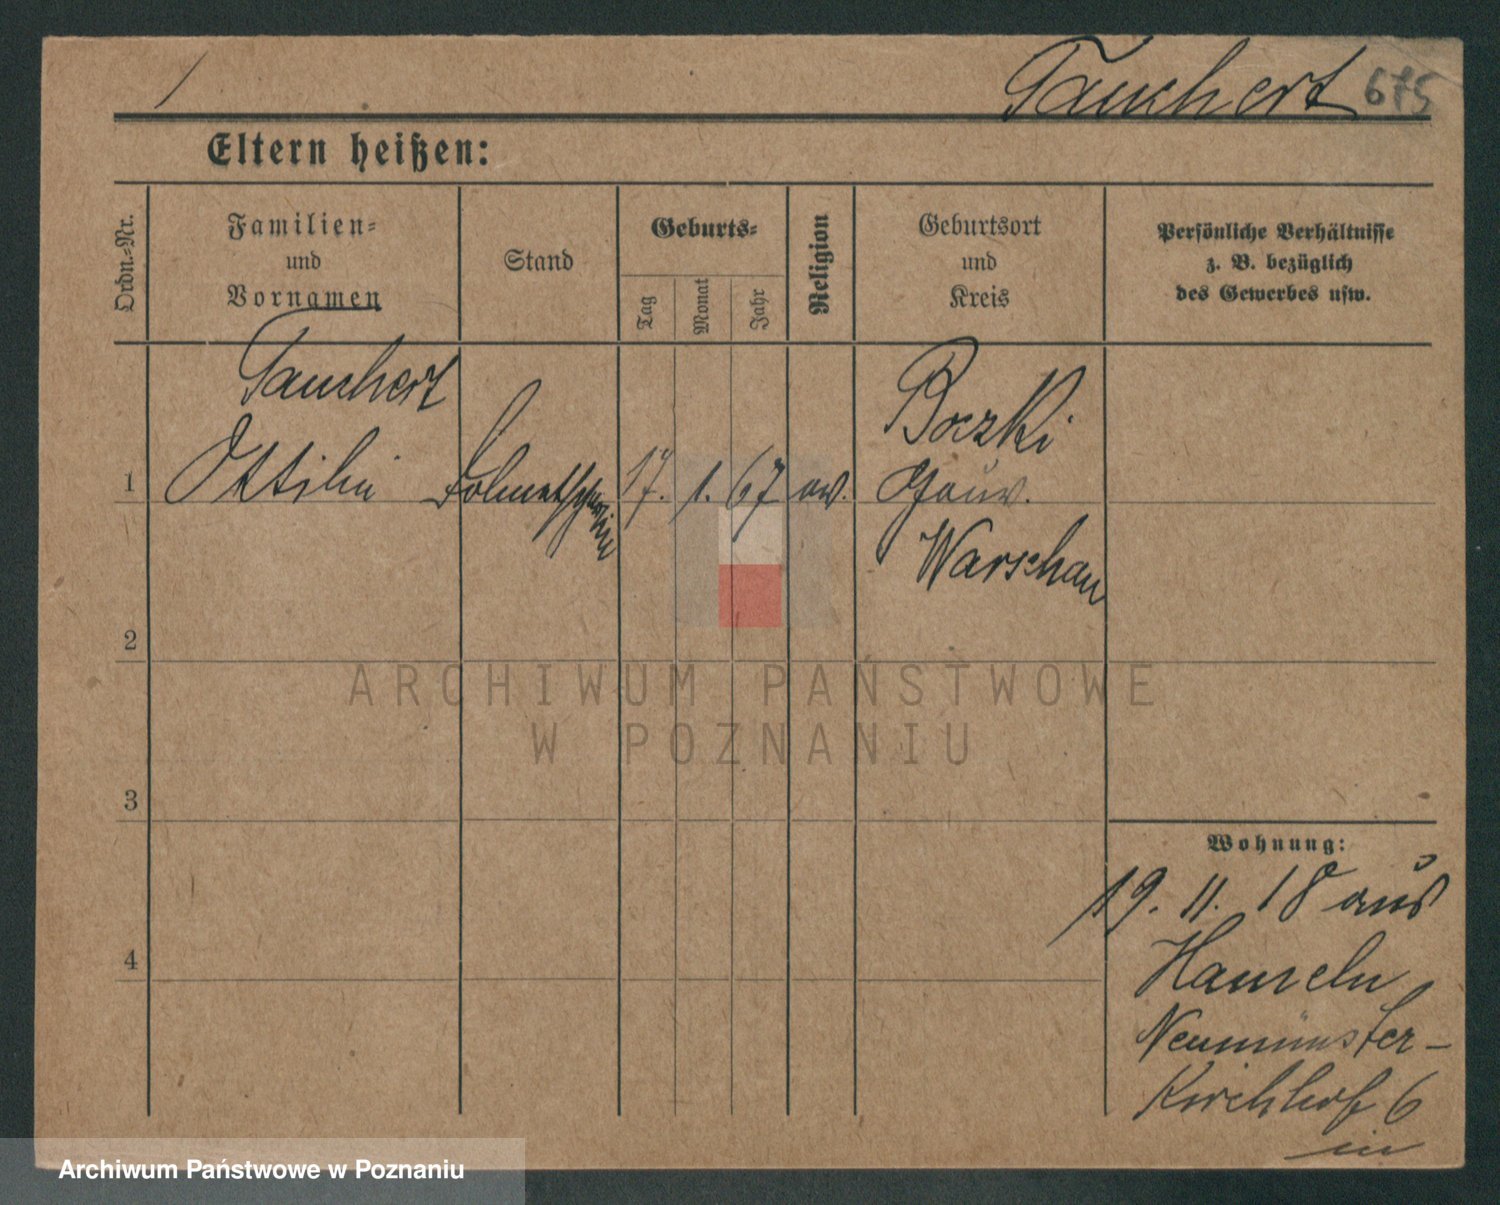 Tauchert 675
Eltern heißen:
Ordn.-Nr.
Familien-
und
Vornamen
Stand
Geburts-
Tag
Monat
Jahr
Religion
Geburtsort
und
Kreis
Persönliche Verhältnisse
z. B. bezüglich
des Gewerbes usw.
Tauchert
1 Ottilie Dolmetscherin 17. 1. 67 ev.
Gouv.
Warschau
2
3
4
Wohnung:
19. 11. 18 aus
Hameln
Neumünster-
Kirchhof 6
in
ARCHIWUM PAŃSTWOWE
W POZNANIU
Archiwum Państwowe w Poznaniu